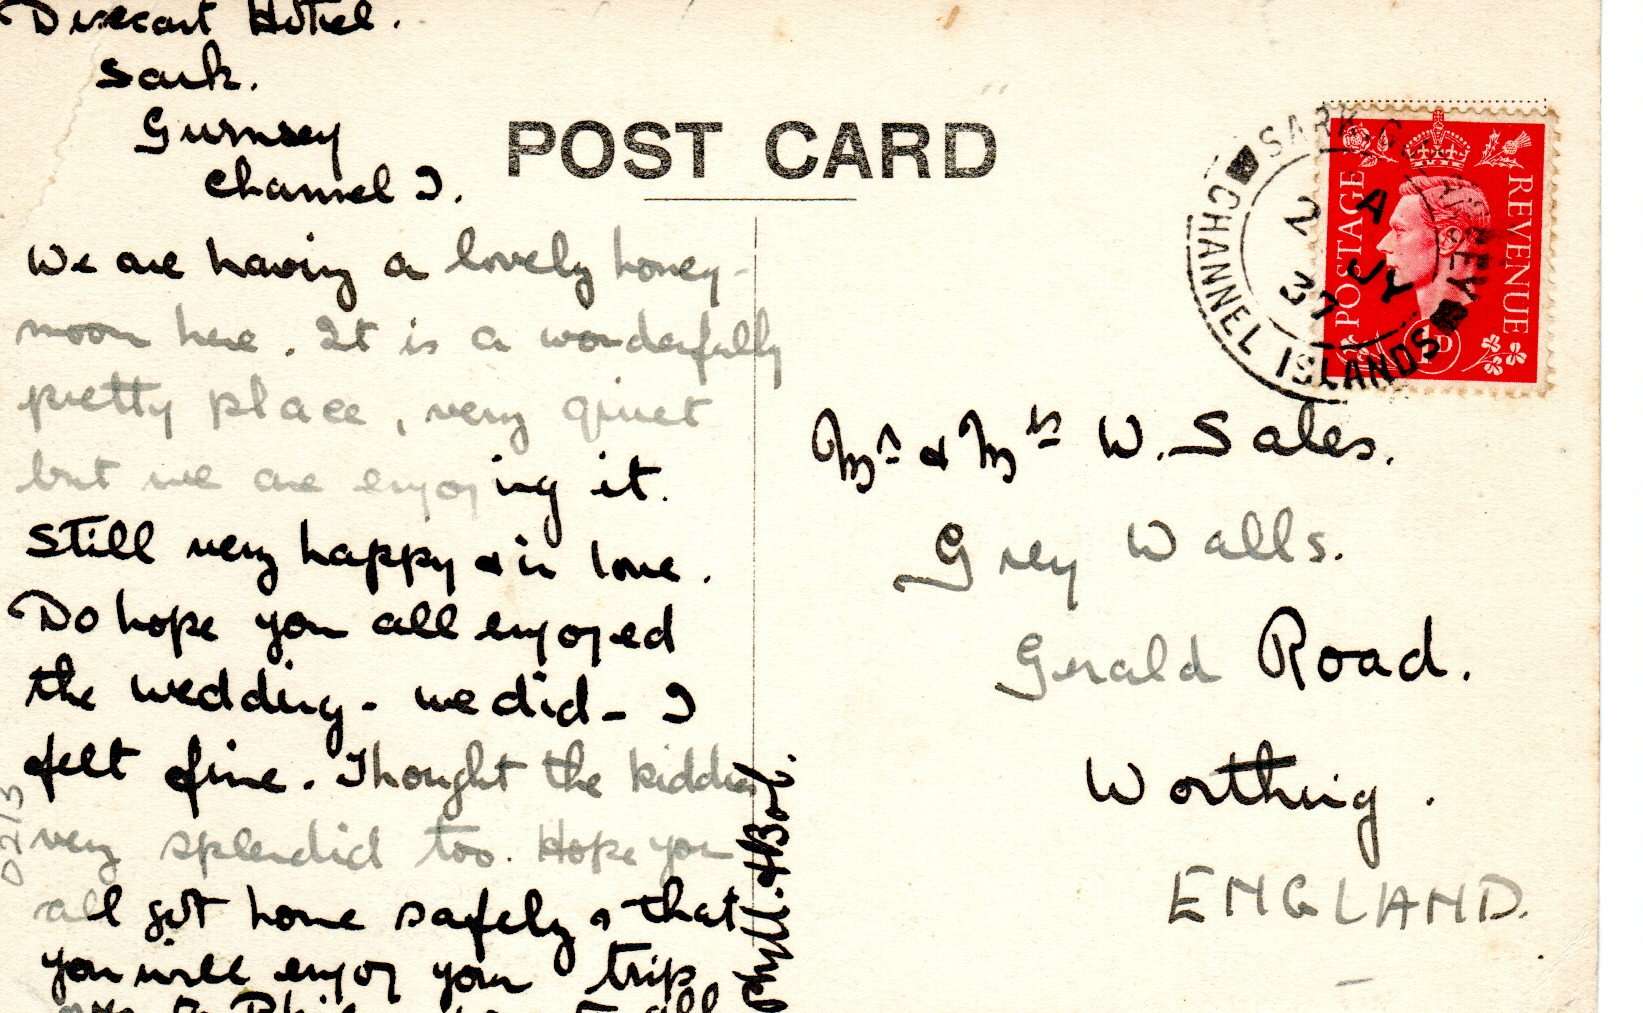 Dixcart Hotel.
Sark.
Gurnsey
Channel I.
We are having a lovely honey-
moon here. It is a wonderfully
pretty place, very quiet
but we are enjoying it.
Still very happy & in love.
Do hope you all enjoyed
the wedding - we did - I
felt fine. Thought the kiddies
very splendid too. Hope you
all got home safely & that
you will enjoy your trip
all
Phyll. & Bob.
D2/3
POST CARD
SARK-GUERNSEY
CHANNEL ISLANDS
A
2 JY
37
POSTAGE
REVENUE
1D
Mr & Mrs W. Sales.
Grey Walls.
Gerald Road.
Worthing.
ENGLAND.